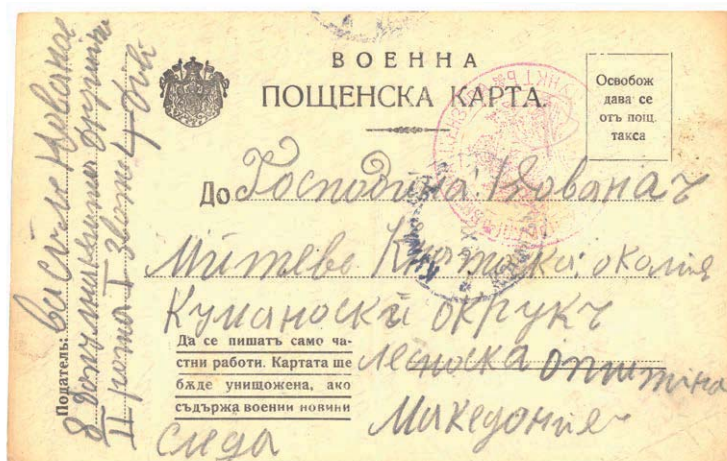 ВОЕННА
ПОЩЕНСКА КАРТА.
Освобож
дава се
отъ пощ.
такса
До Господина: Йованач
Митево Кратоска: околия
Куманоски округъ
Леноска општина
Македония
следа
Да се пишатъ само ча-
стни работи. Картата ще
бѫде унищожена, ако
съдържа военни новини
Податель: Василе Йованов
8 допълнителна дружина
II рота I звот 4